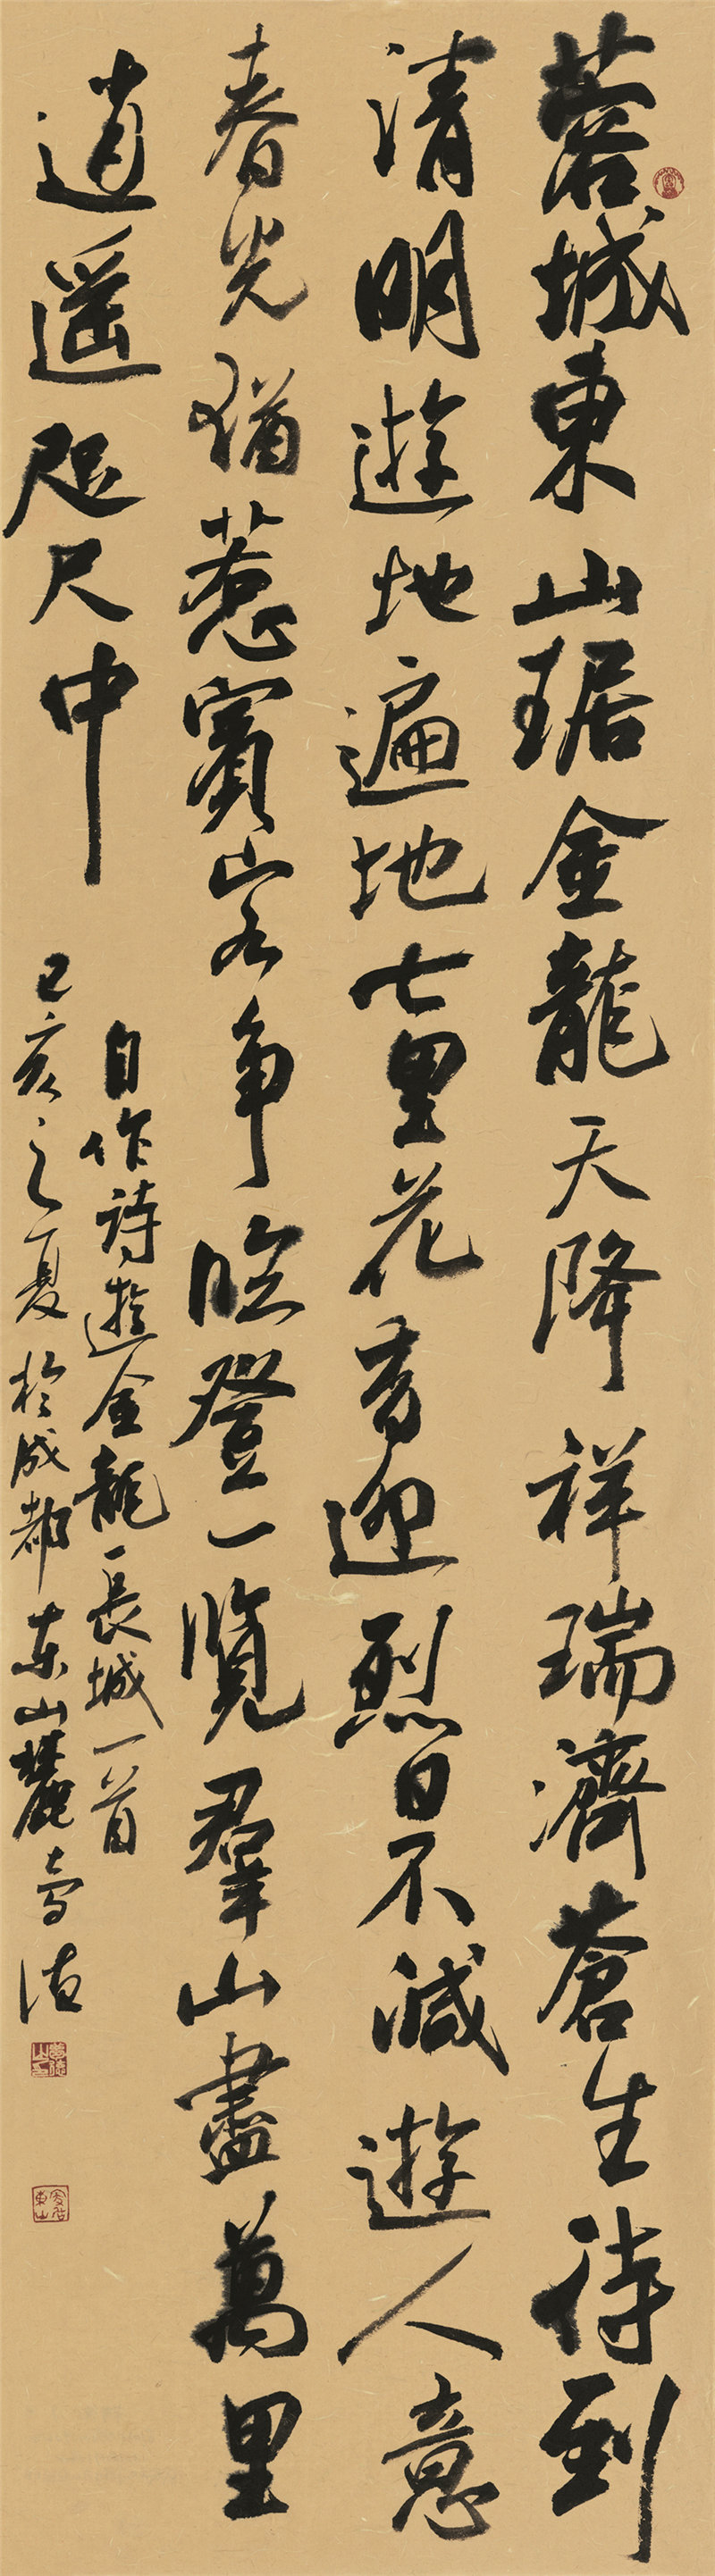 蓉城東山琚金龍天降祥瑞濟蒼生待到
清明遊地遍地七里花香迎烈日不減遊人意
春光猶惹賓客争臨登一覽羣山盡萬里
逍遥咫尺中
自作詩遊金龍長城一首
己亥之夏於成都東山麓